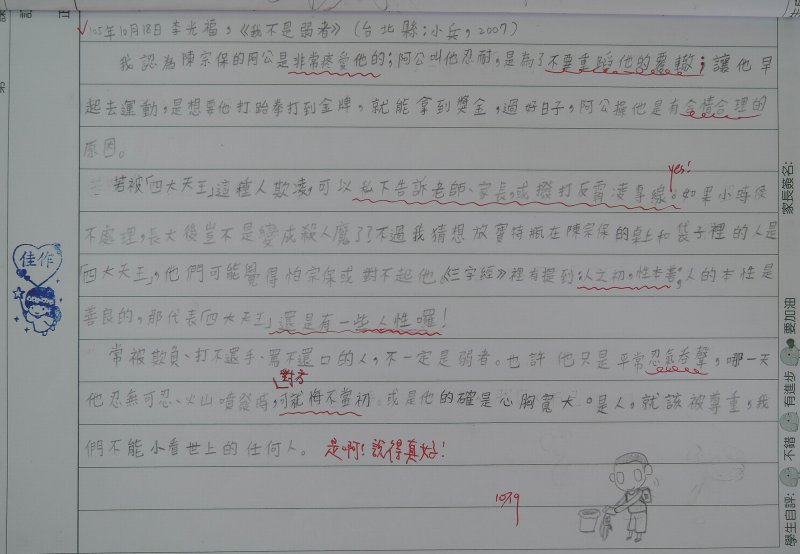 105年10月18日 李光福,《我不是弱者》(台北縣:小兵,2007)
我認為陳宗保的阿公是非常疼愛他的;阿公叫他忍耐,是為了不要重蹈他的覆轍;讓他早
起去運動,是想要他打跆拳打到金牌,就能拿到獎金,過好日子,阿公操他是有合情合理的
原因。
yes!
若被「四大天王」這種人欺凌,可以私下告訴老師、家長,或撥打反霸凌專線。如果小時侯
不處理,長大後豈不是變成殺人魔了?不過我猜想放寶特瓶在陳宗保的桌上和袋子裡的人是
「四大天王」,他們可能覺得怕宗保或對不起他。《三字經》裡有提到:人之初,性本善;人的本性是
善良的,那代表「四大天王」還是有一些人性囉!
常被欺負、打不還手、罵不還口的人,不一定是弱者。也許他只是平常忍氣吞聲,哪一天
對方
他忍無可忍、火山噴發時,可就悔不當初。或是他的確是心胸寬大。是人,就該被尊重,我
們不能小看世上的任何人。是啊!說得真好!
10/19
佳作
家長簽名:
要加油
有進步
不錯
學生自評: